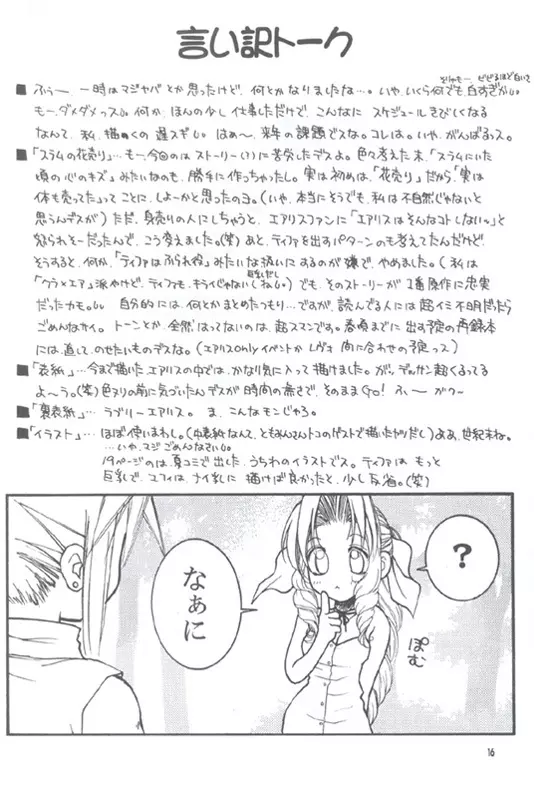 言い訳トーク
■ ふぅー、一時はマジヤバとか思ったけど、何とかなりましたな…。いや、いくら何でも白すぎかい。
もー、ダメダメっス。何か、ほんの少し仕事しただけで、こんなに スケジュールきびしくなる
なんて、私、描くの遅スギい。はぁ〜、来年の課題でスな。コレは。いや、がんばるっス。
■「スラムの花売り」…も、今回のは ストーリー(?)に苦労したデスよ。色々考えた末、「スラムにいた
頃の心のキズ」みたいなのも、勝手に作っちゃったし。実は初めは、「花売り」だから「実は
体も売ってた」ってことに、しよーかと思ったのヨ。(いや、本当にそうでも、私は不自然じゃないと
思うんデスが) ただ、身売りの人にしちゃうと、エアリスファンに「エアリスはそんなコトしないっ」と
怒られそーだったんで、こう考えました。(笑) あと、ティファを出すパターンのも考えてたんだけど、
そうすると、何か、「ティファはふられ役」みたいな扱いにするのが嫌で、やめました。(私は
「クラ×エア」派やけど、ティファも、キライじゃない) でも、そのストーリーが1番原作に忠実
だったカモ。 自分的には、何とかまとめたつもり…ですが、読んでる人には超イミ不明だったら
ごめんなサイ。トーンとか、全然はってないのは、超スマンです。春頃までに 出す予定の再録本
には、直して、のせたいものデスな。(エアリスonlyイベントか レヴォ 間に合わせの予定っス)
■「表紙」…今まで描いたエアリスの中では、かなり気に入って描けました。が、デッサン超くるってる
よ〜う。(笑) 色ヌリの前に気づいたんデスが時間の無さで、そのままGo! ふー がクー
■「裏表紙」… ラブリーエアリス。 ま、こんなモンじゃろ。
■「イラスト」… ほぼ使いまわし。(中表紙なんて、ともみんさんトコのゲストで描いたヤツだし) ああ、世紀末ね。
…いや、マジごめんなさい。
19ページのは、夏コミで出した、うちわのイラストでス。ティファは もっと
巨乳で、ユフィは、ナイ乳に 描けば良かったと、少し反省。(笑)
?
なぁに
ぽむ
16